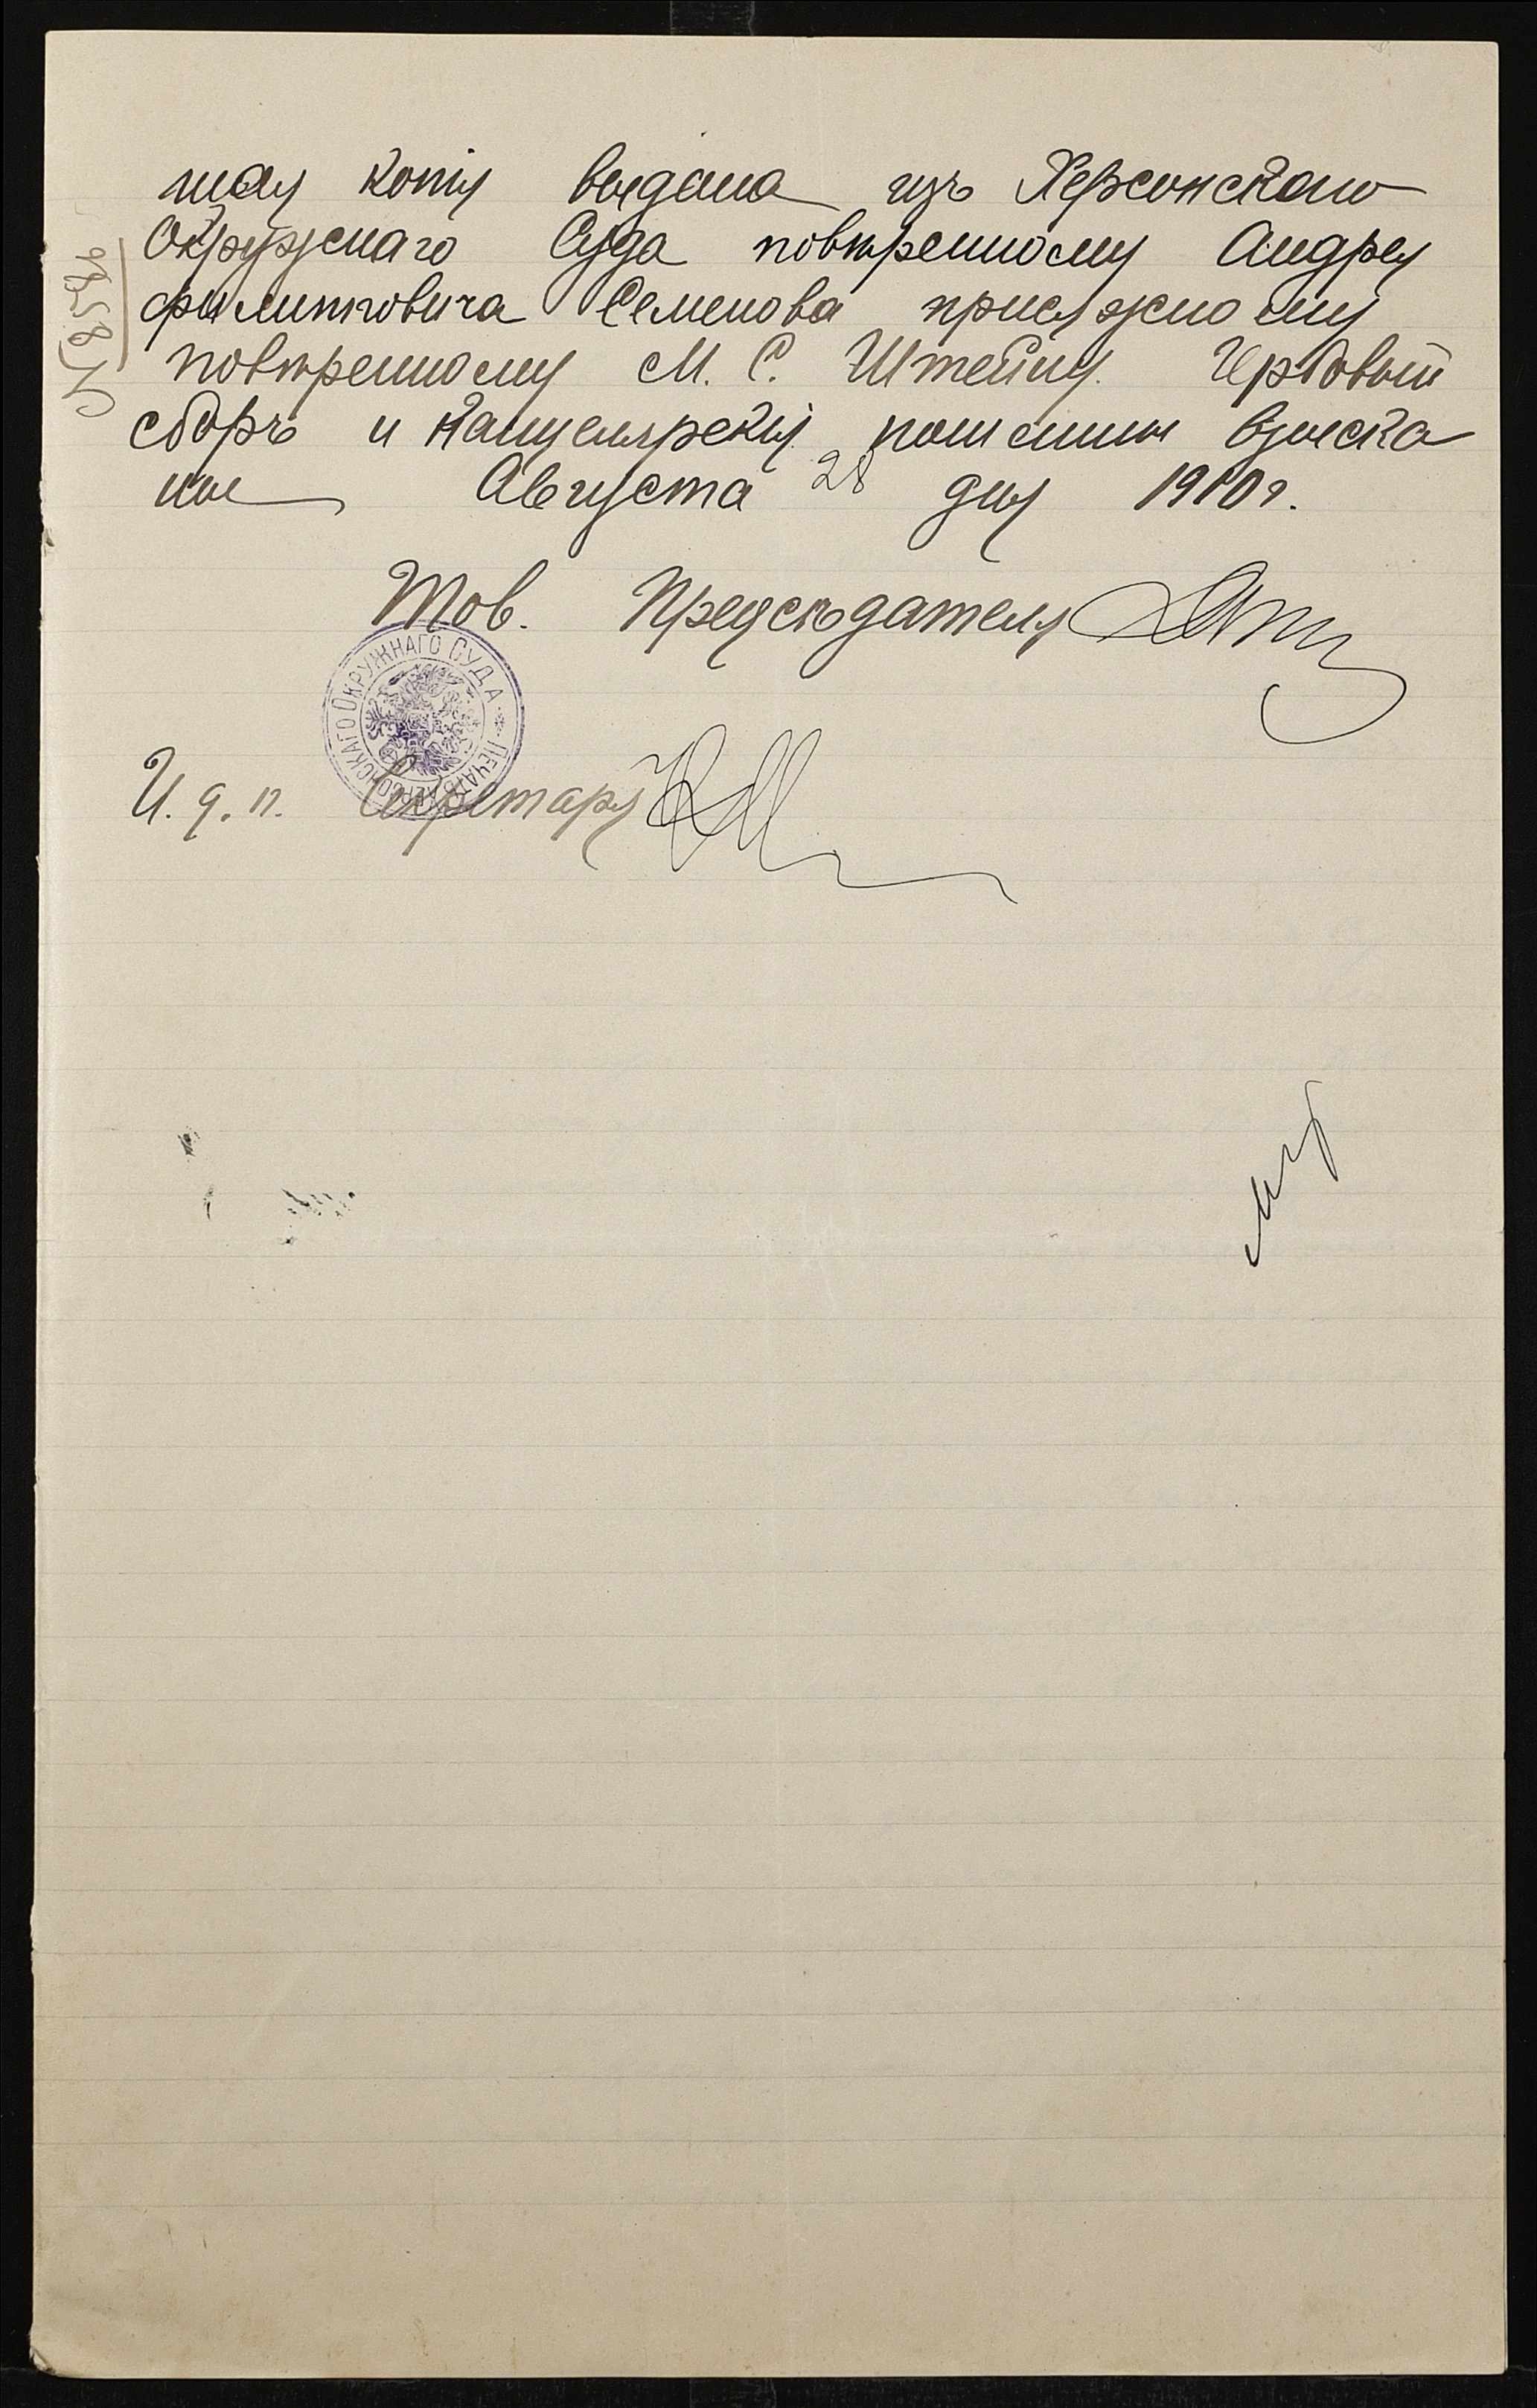 щая копія выдана изъ Херсонскаго
Окружнаго Суда повѣренному Андрея
Филипповича Семенова присяжному
повѣренному М. С. Штейну. Гербовый
сборъ и канцелярскія пошлины взыска
ны Августа 28 дня 1910 г.
Тов. Предсѣдателя
Печать Херсонскаго Окружнаго Суда
И. д. п. Секретаря